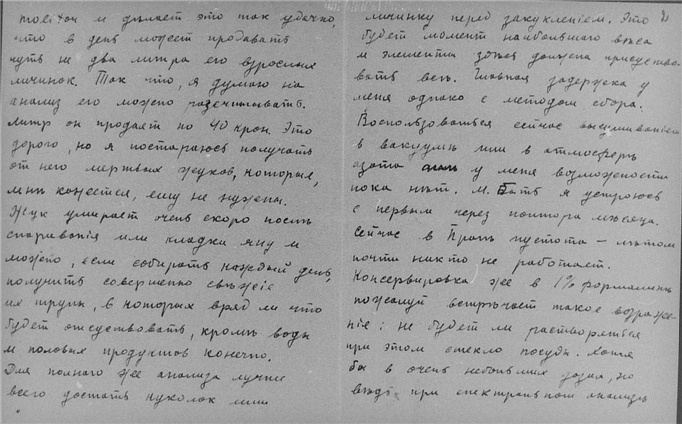 molitor и дѣлает это так удачно,
что в день может продавать
чуть не два литра его взрослых
личинок. Так что, я думаю на
анализ его можно рассчитывать.
Литр он продает по 40 крон. Это
дорого, но я постараюсь получать
от него мертвых жуков, которые,
мнѣ кажется, ему не нужны.
Жук умирает очень скоро послѣ
спаривания или кладки яиц и
можно, если собирать каждый день,
получить совершенно свѣжіе
их трупы, в которых вряд ли что
будет отсутствовать, кромѣ воды
и половых продуктов конечно.
Для полного же анализа лучше
всего достать куколок или
личинку перед закуклением. Это
будет момент наибольшего вѣса
и элементы здѣсь должны присутство-
вать всѣ. Главная задержка у
меня однако с методом сбора.
Воспользоваться сейчас высушиваніем
в вакуумѣ или в атмосферѣ
азота у меня возможности
пока нѣт. М. быть я устроюсь
с первым через полтора мѣсяца.
Сейчас в Прагѣ пустота — лѣтом
почти никто не работает.
Консервировка же в 1% формалинѣ
пожалуй встрѣчает такое возраже-
ніе: не будет ли растворяться
при этом стекло посуды. Хотя
бы в очень небольших дозах, но
вѣдь при спектральном анализѣ